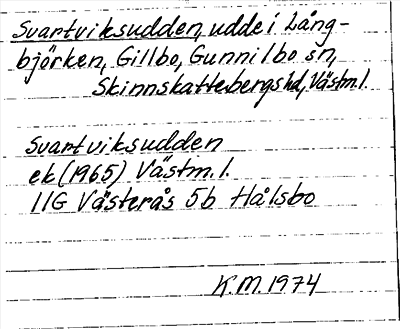 Svartviksudden, udde i Lång-
björken, Gillbo, Gunnilbo sn,
Skinnskattebergs hd, Västm.l.
Svartviksudden
ek (1965) Västm.l.
11G Västerås 5b Hålsbo
K.M. 1974